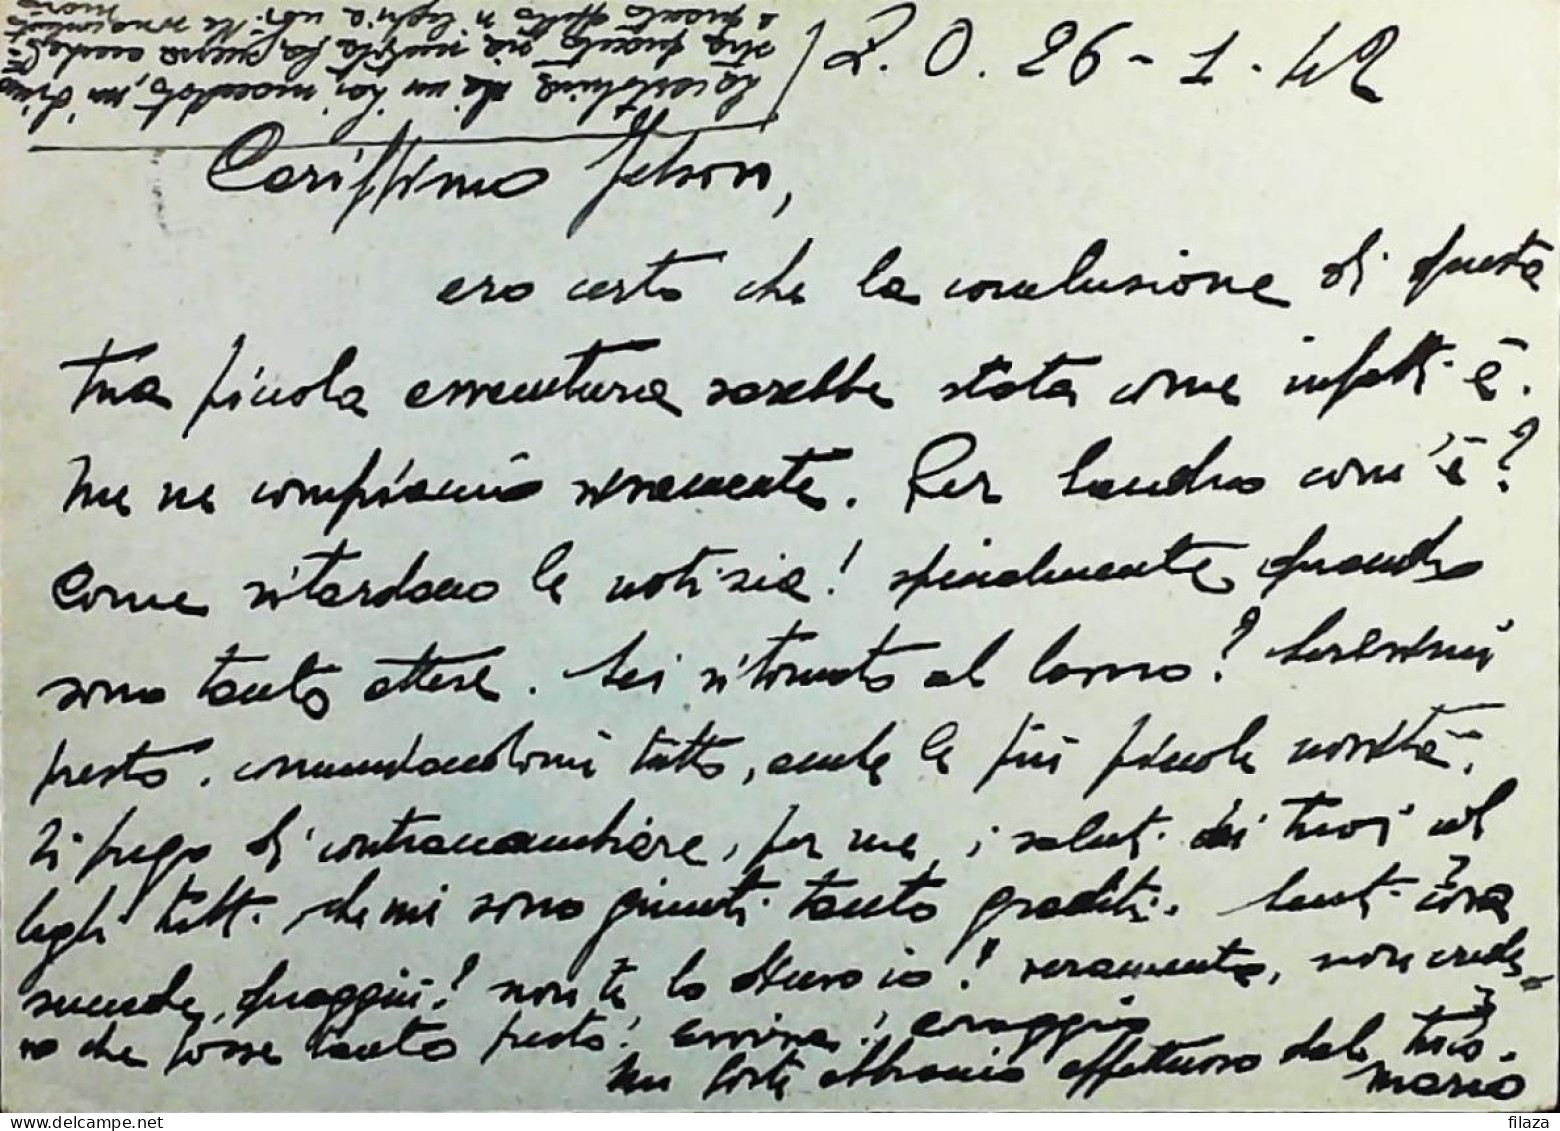 Z.O. 26-1-42
Carissimo
ero certo che la conclusione di questa
tua piccola avventura sarebbe stata come infatti è.
Me ne compiaccio veramente. Per Sandro com'è?
Come ritardano le notizie! specialmente quando
sono tanto attese. Sei ritornato al lavoro? Scrivimi
presto, comunicandomi tutto, anche le più piccole novità.
Ti prego di contraccambiare, per me, i saluti dei tuoi col
leghi tutti che mi sono giunti tanto graditi. Senti cosa
succede, quaggiù? non te lo dicevo io? veramente, non crede-
vo che fosse tanto presto! evviva! coraggio
Un forte abbraccio affettuoso dal tuo
Mario
La cartolina che
filaza